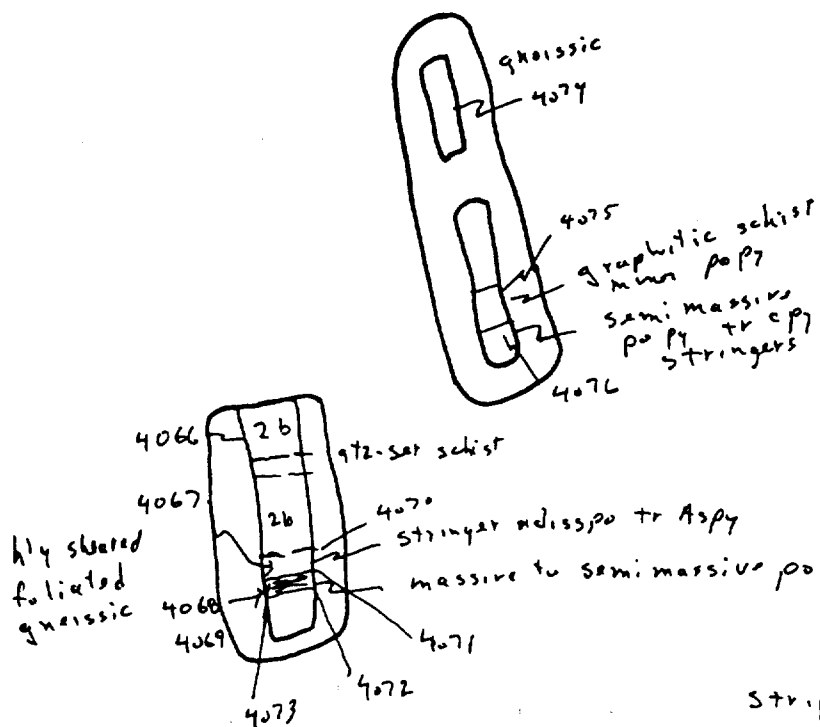 gneissic
4074
4075
graphitic schist
minor po py
semi massive
po py tr cpy
stringers
4076
4066
2b
qtz-ser schist
4067
2b
4070
stringer + diss po tr Aspy
h'y sheared
foliated
gneissic
massive to semi massive po
4068
4069
4071
4072
4073